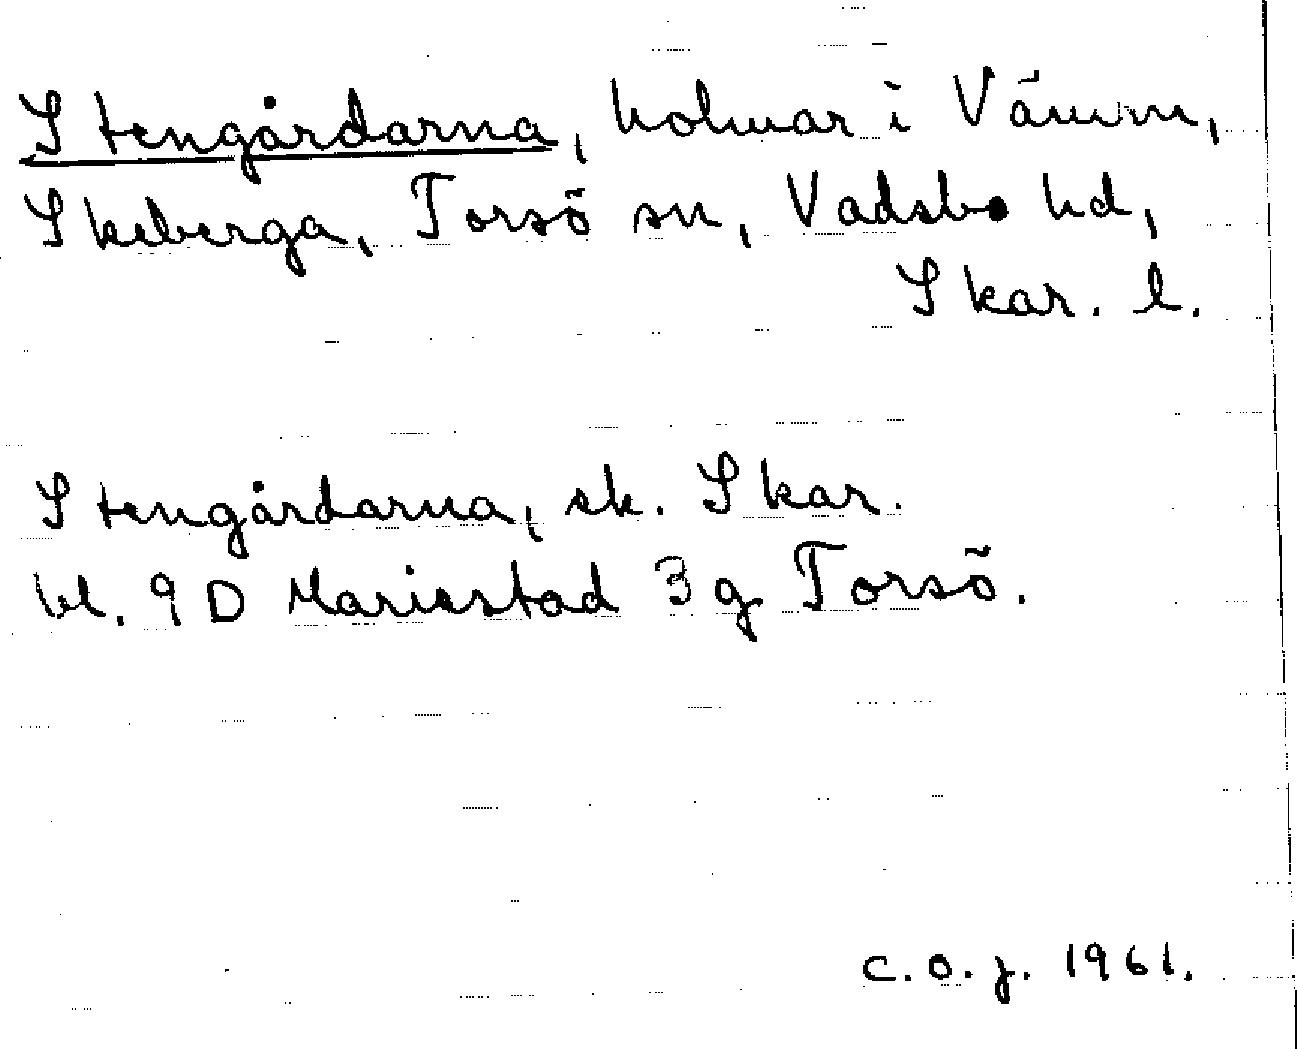 Stengårdarna, holmar i Vänern,
Skeberga, Torsö sn, Vadsbo hd,
Skar. l.
Stengårdarna, sk. Skar.
bl. 9 D Mariestad 3 g Torsö.
C.O.J. 1961.